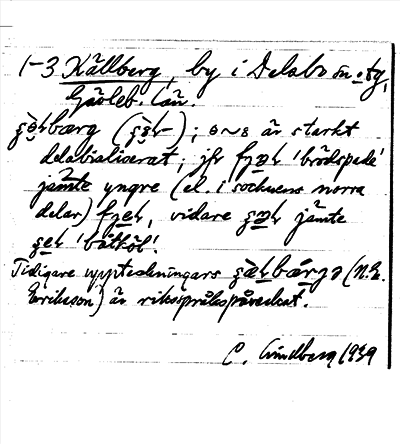 1-3 Källberg, by i Delsbo sn o. tg,
Gävleb. län.
bærg ( ); ɵ~ɞ är starkt
delabialiserat; jfr 'brödspade'
jämte yngre (el. i socknens norra
delar) , vidare jämte
'båtköl'.
Tidigare uppteckningars (N.E.
Eriksson) är riksspråkspåverkat.
C. Lindberg 1939